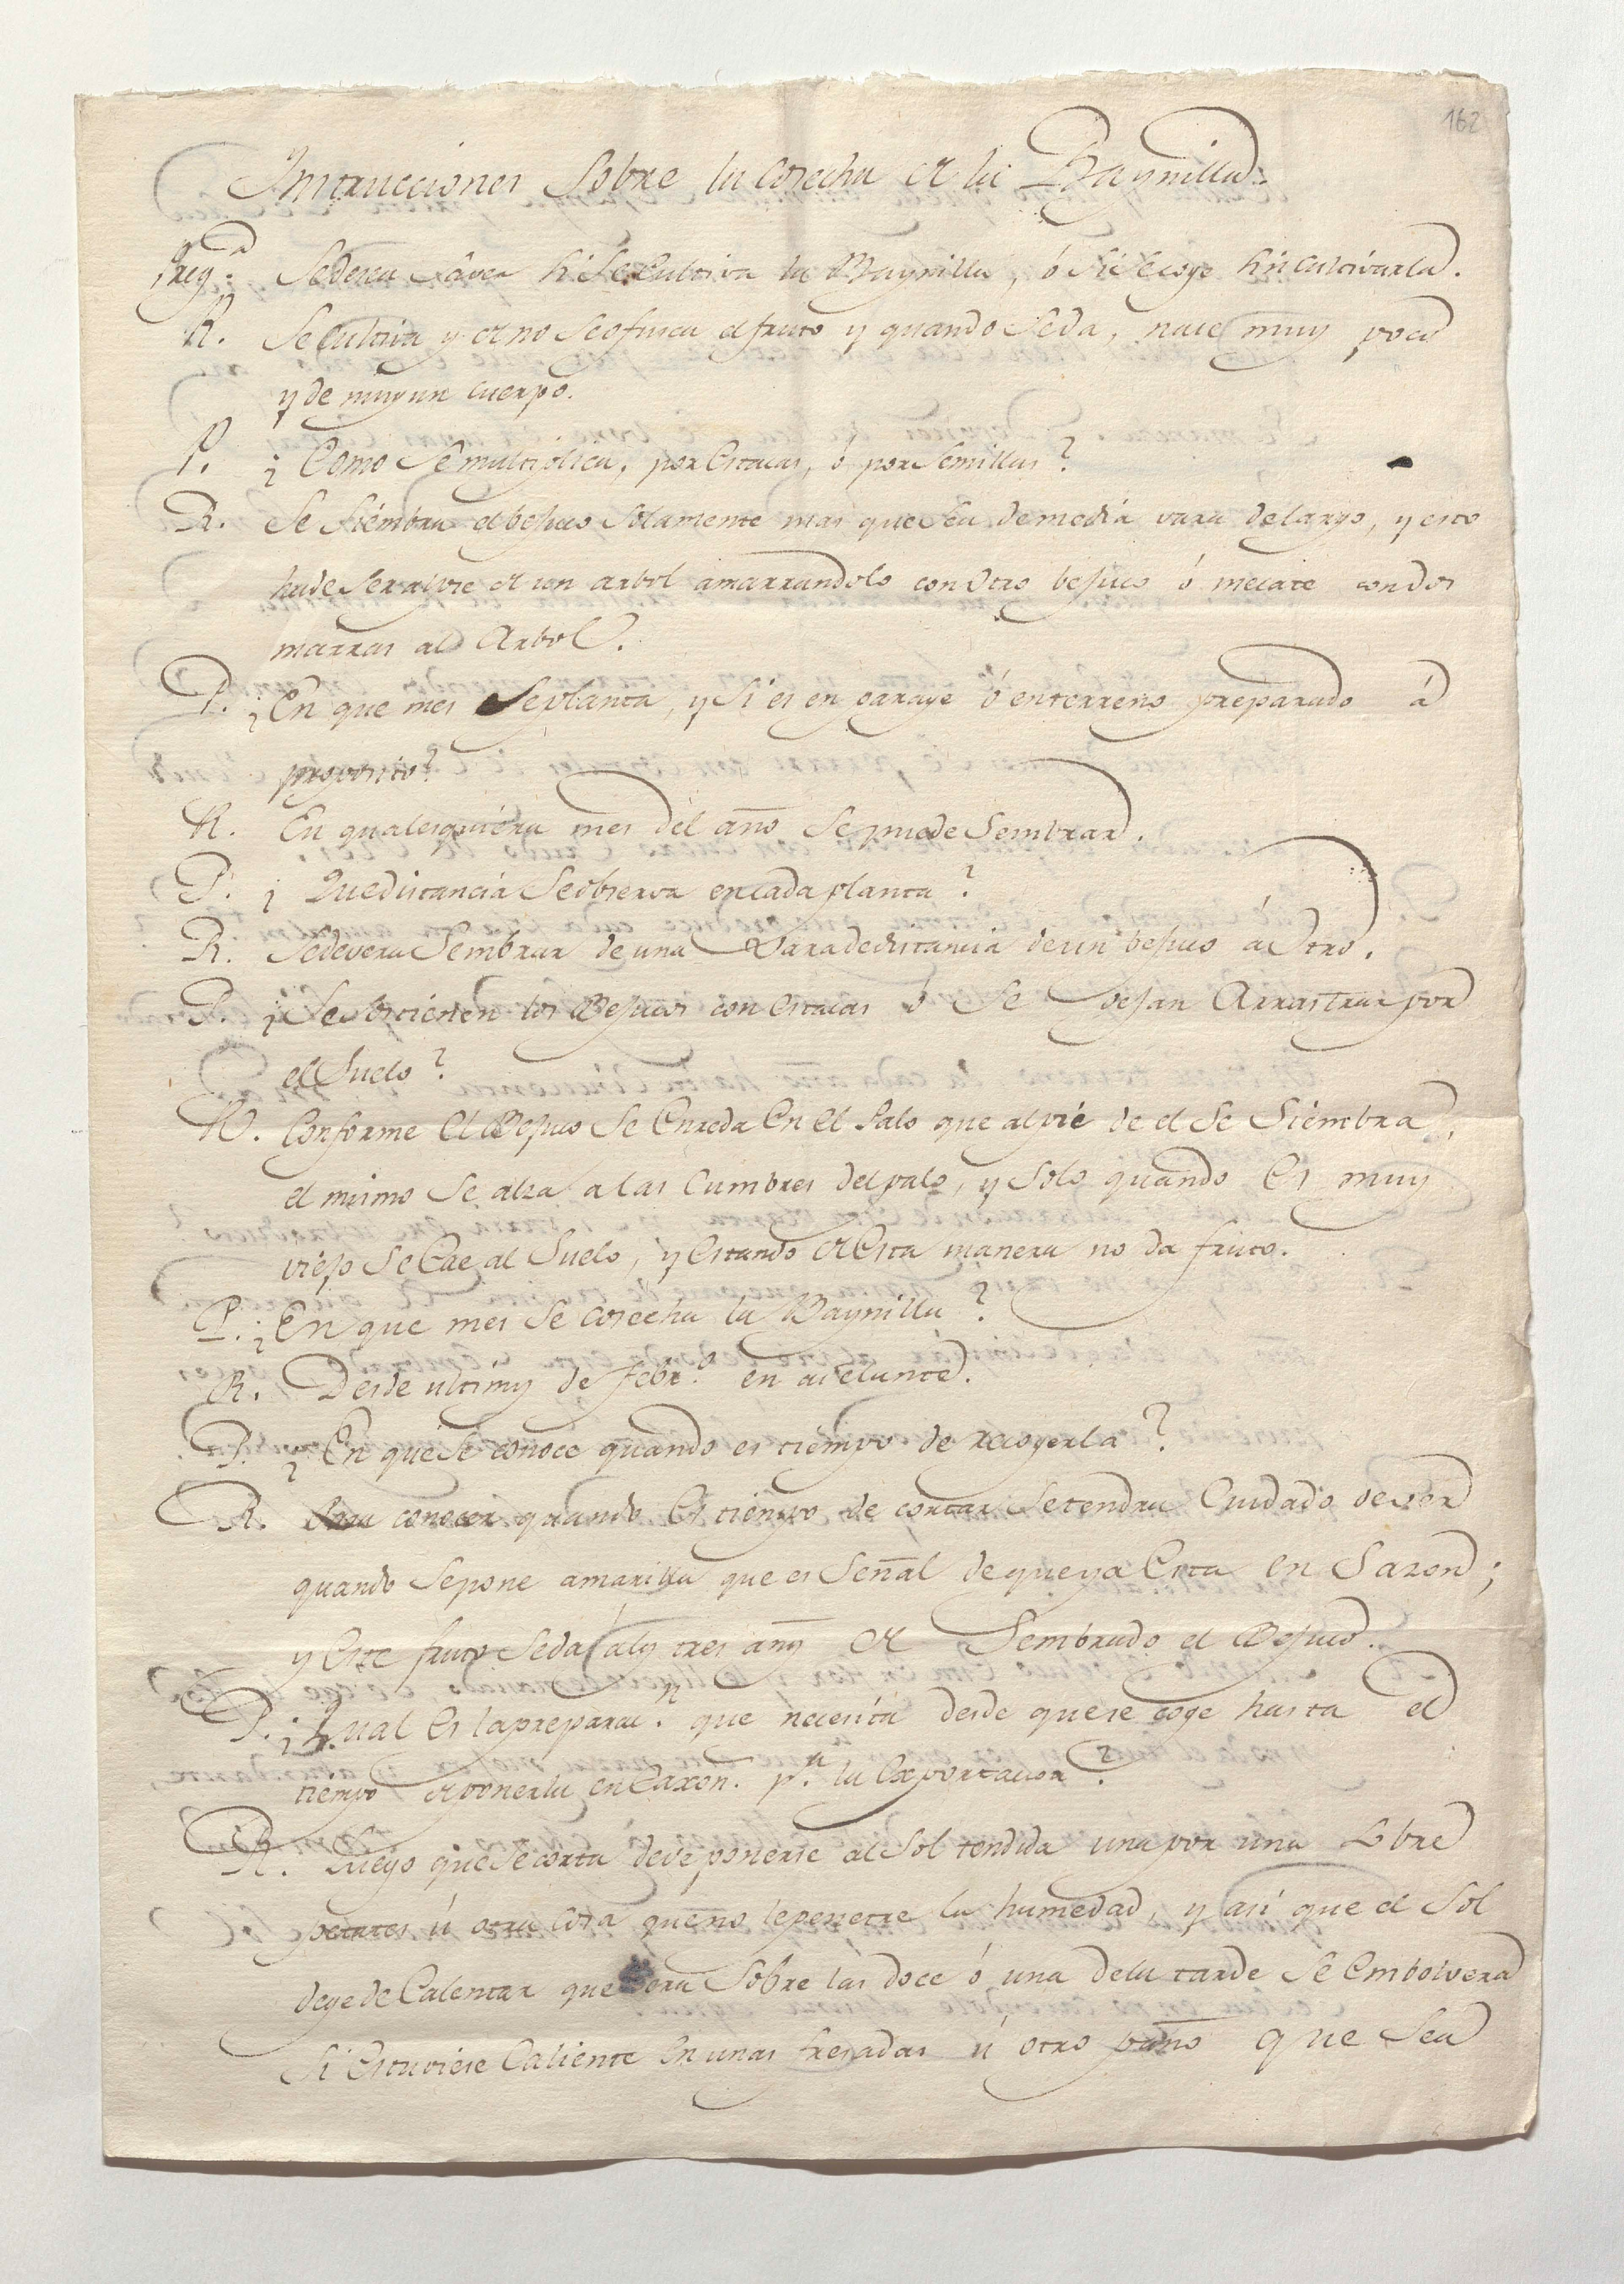 162
Intrucciones sobre la cosecha de la Baynilla.
Preg.ª Sedesea saver si se cultiva la Baynilla, ó si se coge sin cultivarla.
R. Se cultiva y de no se ofusca el fruto y quando se da, nace muy poca
y de muy un cuerpo.
P. ¿Como se multiplica, por estacas, ó por semillas?
R. Se siémbra el bejuco solamente mas que sea de media vara de largo, y esto
ha de ser al pie de un arbol amarrandolo con otro bejuco ó mecate con dos
marras al Arbol.
P. ¿En que mes se planta, y si es en paraye ó en terreno preparado á
proposito?
R. En qualesquiéra mes del año se puede sembrar.
P. ¿Que distancia se observa en cada planta?
R. Se devera sembrar de una vara de distancia de un bejuco á otro.
P. ¿Se sostienen los Bejucos con estacas ó se dejan Arrastrar por
el suelo?
R. Conforme el Bejuco se enreda en el Palo que al pie de el se siémbra,
el mismo se alza a las cumbres del palo, y solo quando es muy
viejo se cae al suelo, y estando de esta manera no da fruto.
P. ¿En que mes se cosecha la Baynilla?
R. Desde ultimos de febr.º en adelante.
P. ¿En que se conoce quando es tiempo de recogerla?
R. Para conocer quando es tiempo de cortar se tendra cuidado de ver
quando se pone amarilla que es señal de que ya esta en sazon;
y este fruto se da á los tres años de sembrado el Bejuco.
P. ¿Qual es la preparac.n que necesita desde que se coge hasta el
tiempo de ponerla en Caxon. p.ª la exportacion?
R. Luego que se corta deve ponerse al sol tendida una por una sobre
petates ú otra cosa que no le penetre la humedad, y asi que el sol
deye de calentar que sera sobre las doce ó una de la tarde se embolvera
si estuviese caliente en unas fresadas ú otro paño que sea